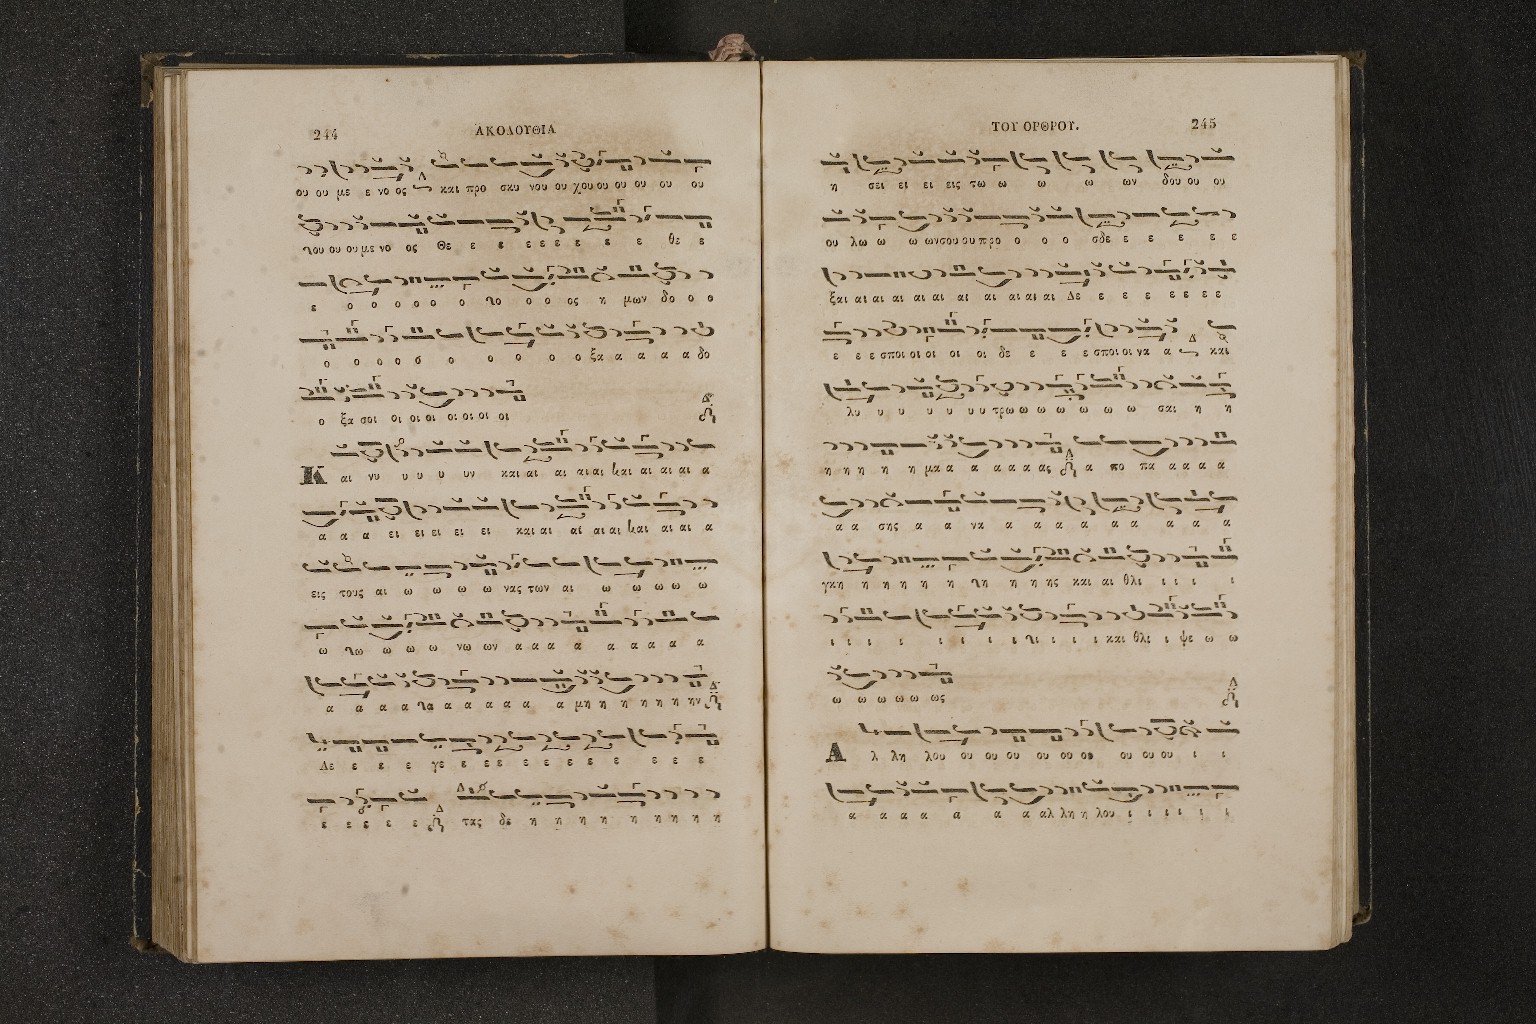 244
ΑΚΟΛΟΥΘΙΑ
ου ου με ε νο ος και προ σκυ νου ου χου ου ου ου ου ου
του ου ου με νο ος Θε ε ε ε ε ε ε ε ε ε θε ε
ε ο ο ο ο ο ο το ο ο ος η μων δο ο ο
ο ο ο ο σ ο ο ο ο ο ξα α α α α δο
ο ξα σοι οι οι οι οι οι οι οι
Και νυ υ υ υ υν και αι αι αι αι και αι αι αι α
α α α ει ει ει ει ει και αι αι αι αι και αι αι α
εις τους αι ω ω ω ω νας των αι ω ω ω ω ω
ω τω ω ω ω νω ων α α α α α α α α α
α α α α τα α α α α α α μη η η η η η ην
Δε ε ε ε γε ε ε ε ε ε ε ε ε ε ε ε
ε ε ε ε ε τας δε η η η η η η η η η
ΤΟΥ ΟΡΘΡΟΥ.
245
η σει ει ει εις τω ω ω ω ων δου ου ου
ου λω ω ω ων σου ου προ ο ο ο σδε ε ε ε ε ε
ξαι αι αι αι αι αι αι αι αι αι αι Δε ε ε ε ε ε ε ε
ε ε ε σποι οι οι οι οι δε ε ε ε σποι οι να α και
λυ υ υ υ υ υ υ τρω ω ω ω ω ω ω σαι η η
η η η η η μα α α α α α α ας α πο πα α α α α
α α σης α α να α α α α α α α α α
γκη η η η η η τη η η ης και αι θλι ι ι ι ι
ι ι ι ι ι ι ι ι τι ι ι ι και θλι ι ψε ω ω
ω ω ω ω ω ως
Αλ λη λου ου ου ου ου ου ου ου ου ου ι ι
α α α α α α α αλ λη η λου ι ι ι ι ι ι